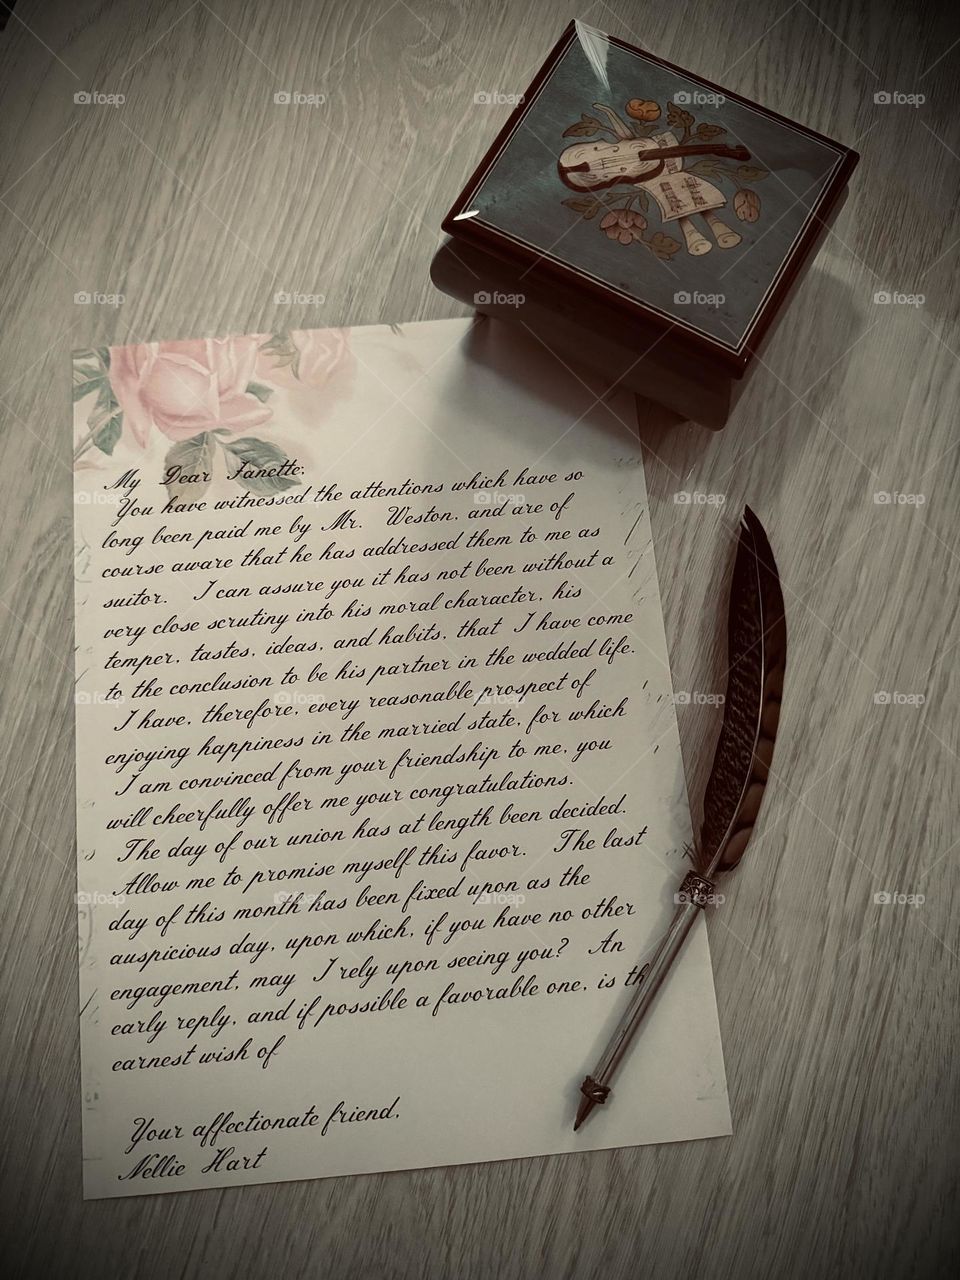 My Dear Janette:
You have witnessed the attentions which have so
long been paid me by Mr. Weston, and are of
course aware that he has addressed them to me as
suitor. I can assure you it has not been without a
very close scrutiny into his moral character, his
temper, tastes, ideas, and habits, that I have come
to the conclusion to be his partner in the wedded life.
I have, therefore, every reasonable prospect of
enjoying happiness in the married state, for which
I am convinced from your friendship to me, you
will cheerfully offer me your congratulations.
The day of our union has at length been decided.
Allow me to promise myself this favor. The last
day of this month has been fixed upon as the
auspicious day, upon which, if you have no other
engagement, may I rely upon seeing you? An
early reply, and if possible a favorable one, is th
earnest wish of
Your affectionate friend,
Nellie Hart
foap